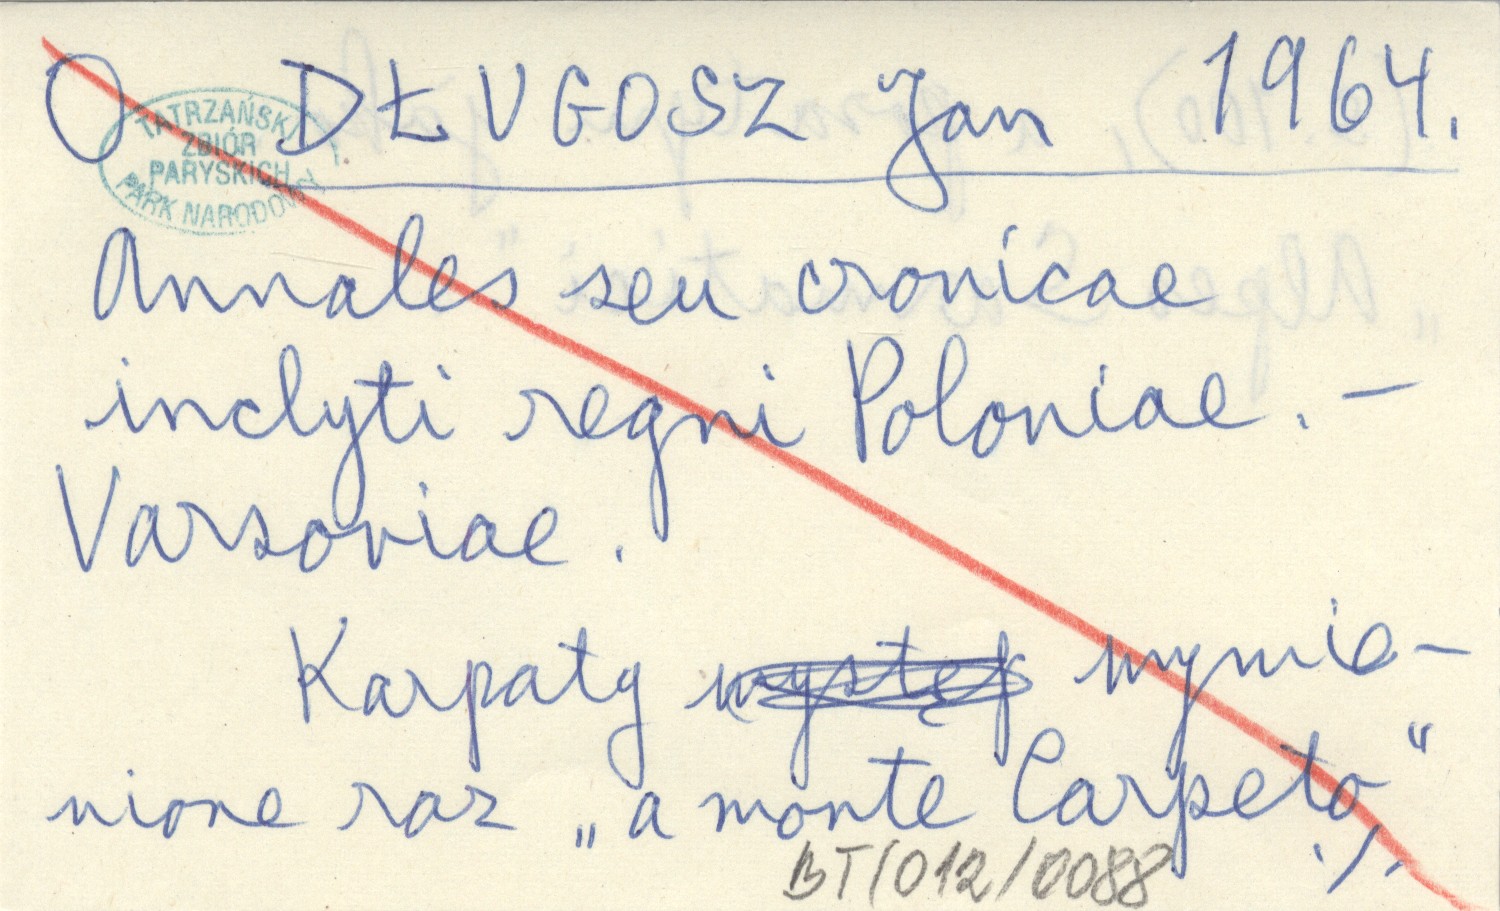 O DŁUGOSZ Jan 1964.
TATRZAŃSKI
ZBIÓR
PARYSKICH
PARK NARODOWY
Annales seu cronicae
inclyti regni Poloniae. –
Varsoviae.
Karpaty wymie-
nione raz „a monte Carpeto,"
./.
BT/012/0088